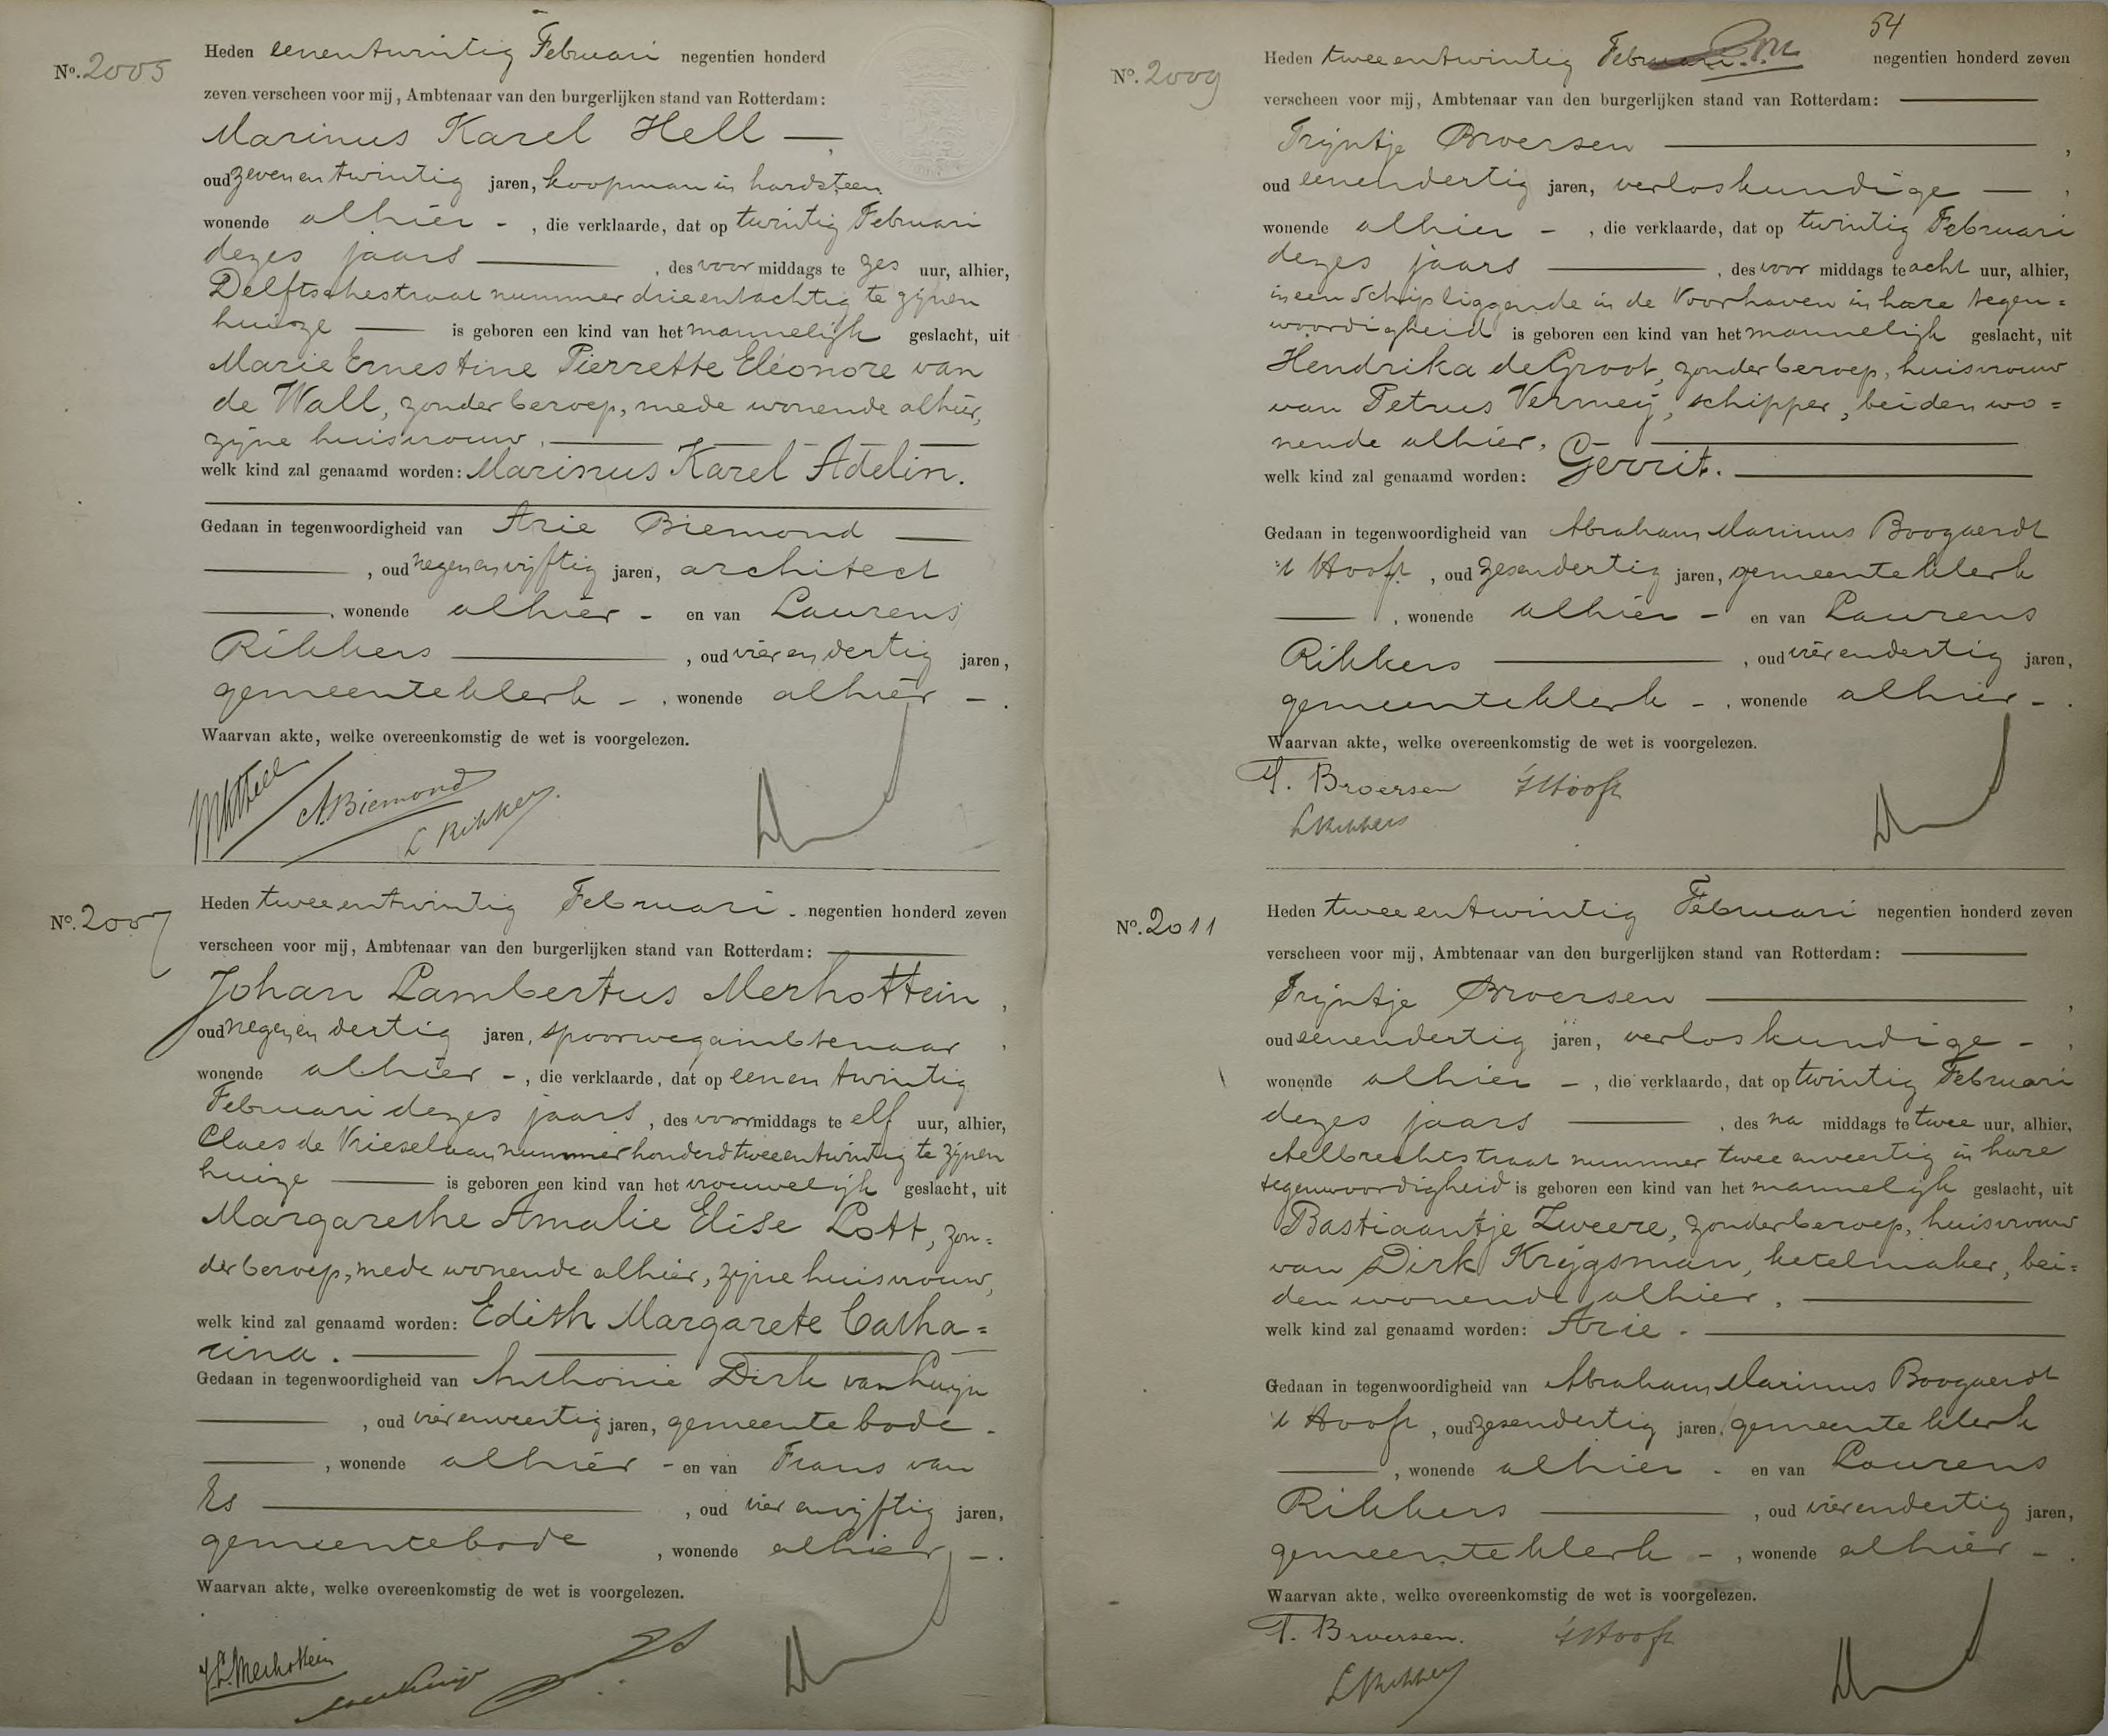 No. 2005
Heden eenentwintig Februari negentien honderd
zeven verscheen voor mij, Ambtenaar van den burgerlijken stand van Rotterdam:
Marinus Karel Hell —,
oud zevenentwintig jaren, koopman in hardsteen
wonende alhier - , die verklaarde, dat op twintig Februari
dezes jaars — , des voor middags te zes uur, alhier,
Delftschestraat nummer drieentachtig te zijnen
huize — is geboren een kind van het mannelijk geslacht, uit
Marie Ernestine Pierrette Eléonore van
de Wall, zonder beroep, mede wonende alhier,
zijne huisvrouw, —
welk kind zal genaamd worden: Marinus Karel Adelin.
Gedaan in tegenwoordigheid van Arie Biemond —
— , oud negenenvijftig jaren, architect
— , wonende alhier - en van Laurens
Rikkers — , oud vierendertig jaren,
gemeenteklerk - , wonende alhier - .
Waarvan akte, welke overeenkomstig de wet is voorgelezen.
MKHell A. Biemond
L Rikkers
No. 2007
Heden tweeentwintig Februari - negentien honderd zeven
verscheen voor mij, Ambtenaar van den burgerlijken stand van Rotterdam: —
Johan Lambertus Merhottein ,
oud negenendertig jaren, spoorwegambtenaar ,
wonende alhier - , die verklaarde, dat op eenentwintig
Februari dezes jaars , des voormiddags te elf uur, alhier,
Claes de Vrieselaan nummer honderdtweeentwintig te zijnen
huize — is geboren een kind van het vrouwelijk geslacht, uit
Margarethe Amalie Elise Lott, zon=
der beroep, mede wonende alhier, zijne huisvrouw,
welk kind zal genaamd worden: Edith Margarete Catha=
rina. —
Gedaan in tegenwoordigheid van Anthonie Dirk van Luijn
— , oud vierenveertig jaren, gemeentebode -
— , wonende alhier - en van Frans van
Es — , oud vierenvijftig jaren,
gemeentebode , wonende alhier - .
Waarvan akte, welke overeenkomstig de wet is voorgelezen.
J.L. Merhottein
54
No. 2009
Heden tweeentwintig Februari negentien honderd zeven
verscheen voor mij, Ambtenaar van den burgerlijken stand van Rotterdam: —
Trijntje Broersen — ,
oud eenendertig jaren, verloskundige — ,
wonende alhier - , die verklaarde, dat op twintig Februari
dezes jaars — , des voor middags te acht uur, alhier,
in een Schip liggende in de Voorhaven in hare tegen=
woordigheid is geboren een kind van het mannelijk geslacht, uit
Hendrika de Groot, zonder beroep, huisvrouw
van Petrus Vermeij, schipper, beiden wo=
nende alhier, —
welk kind zal genaamd worden: Gerrit. —
Gedaan in tegenwoordigheid van Abraham Marinus Boogaerdt
't Hooft , oud zesendertig jaren, gemeenteklerk
— , wonende alhier - en van Laurens
Rikkers — , oud vierendertig jaren,
gemeenteklerk - , wonende alhier - .
Waarvan akte, welke overeenkomstig de wet is voorgelezen.
T. Broersen 't Hooft
L Rikkers
No. 2011
Heden tweeentwintig Februari negentien honderd zeven
verscheen voor mij, Ambtenaar van den burgerlijken stand van Rotterdam: —
Trijntje Broersen — ,
oud eenendertig jaren, verloskundige - ,
wonende alhier - , die verklaarde, dat op twintig Februari
dezes jaars — , des na middags te twee uur, alhier,
Aelbrechtstraat nummer tweeenveertig in hare
tegenwoordigheid is geboren een kind van het mannelijk geslacht, uit
Bastiaantje Zweere, zonder beroep, huisvrouw
van Dirk Krijgsman, ketelmaker, bei=
den wonende alhier, —
welk kind zal genaamd worden: Arie. —
Gedaan in tegenwoordigheid van Abraham Marinus Boogaerdt
't Hooft , oud zesendertig jaren, gemeenteklerk
— , wonende alhier - en van Laurens
Rikkers — , oud vierendertig jaren,
gemeenteklerk - , wonende alhier - .
Waarvan akte, welke overeenkomstig de wet is voorgelezen.
T. Broersen. 't Hooft
L Rikkers